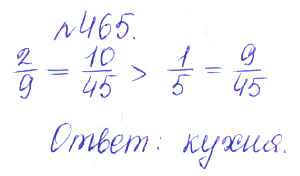 №465.
2/9 = 10/45 > 1/5 = 9/45
Ответ: кухня.